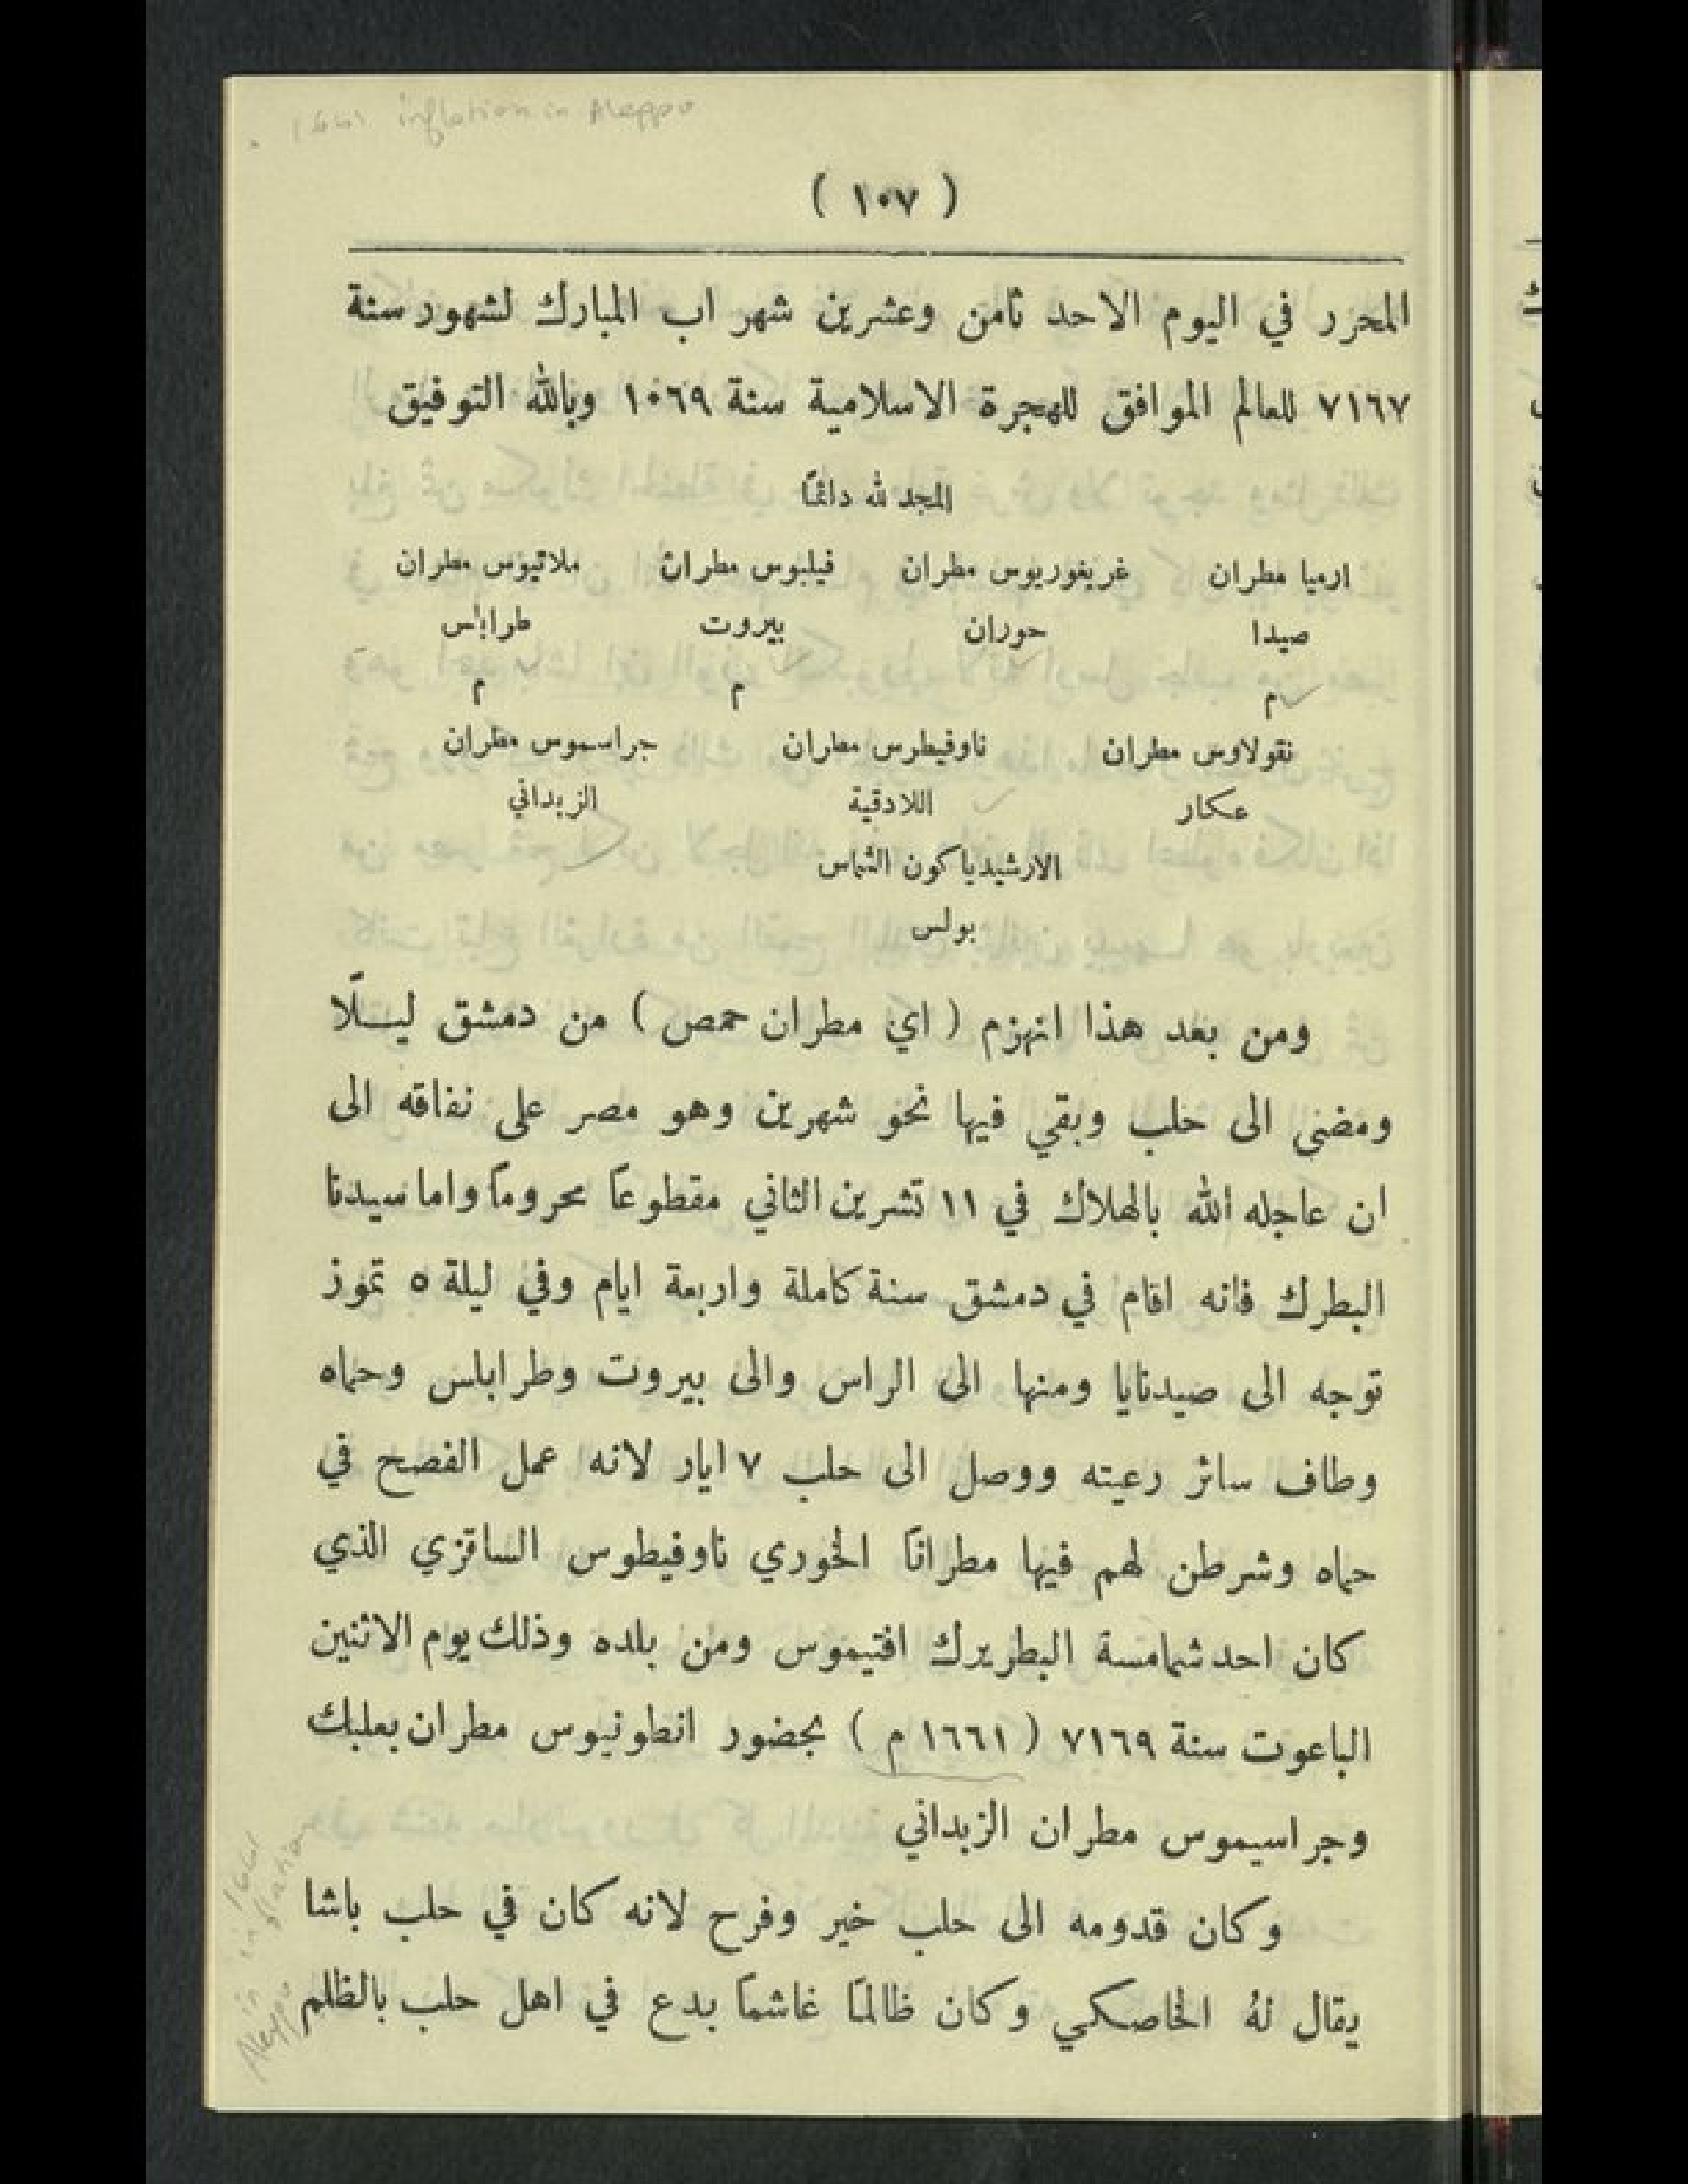 1661 inflation in Aleppo
( ١٠٧ )
المحرر في اليوم الاحد ثامن وعشرين شهر اب المبارك لشهور سنة
٧١٦٧ للعالم الموافق للهجرة الاسلامية سنة ١٠٦٩ وبالله التوفيق
المجد لله دائمًا
ارميا مطران غريغوريوس مطران فيلبوس مطران ملاتيوس مطران
صيدا حوران بيروت طرابلس
م م م
نقولاوس مطران ناوفيطرس مطران جراسموس مطران
عكار اللادقية الزبداني
الارشيدياكون الشماس
بولس
ومن بعد هذا انهزم ( اي مطران حمص ) من دمشق ليـلًا
ومضى الى حلب وبقي فيها نحو شهرين وهو مصر على نفاقه الى
ان عاجله الله بالهلاك في ١١ تشرين الثاني مقطوعًا محرومًا واما سيدنا
البطرك فانه اقام في دمشق سنة كاملة واربعة ايام وفي ليلة ٥ تموز
توجه الى صيدنايا ومنها الى الراس والى بيروت وطرابلس وحماه
وطاف سائر رعيته ووصل الى حلب ٧ ايار لانه عمل الفصح في
حماه وشرطن لهم فيها مطرانًا الخوري ناوفيطوس الساقزي الذي
كان احد شمامسة البطريرك افتيموس ومن بلده وذلك يوم الاثنين
الباعوت سنة ٧١٦٩ ( ١٦٦١ م ) بحضور انطونيوس مطران بعلبك
وجراسيموس مطران الزبداني
وكان قدومه الى حلب خير وفرح لانه كان في حلب باشا
يقال لهُ الخاصكي وكان ظالمًا غاشمًا بدع في اهل حلب بالظلم
inflation
in 1661
in
Aleppo